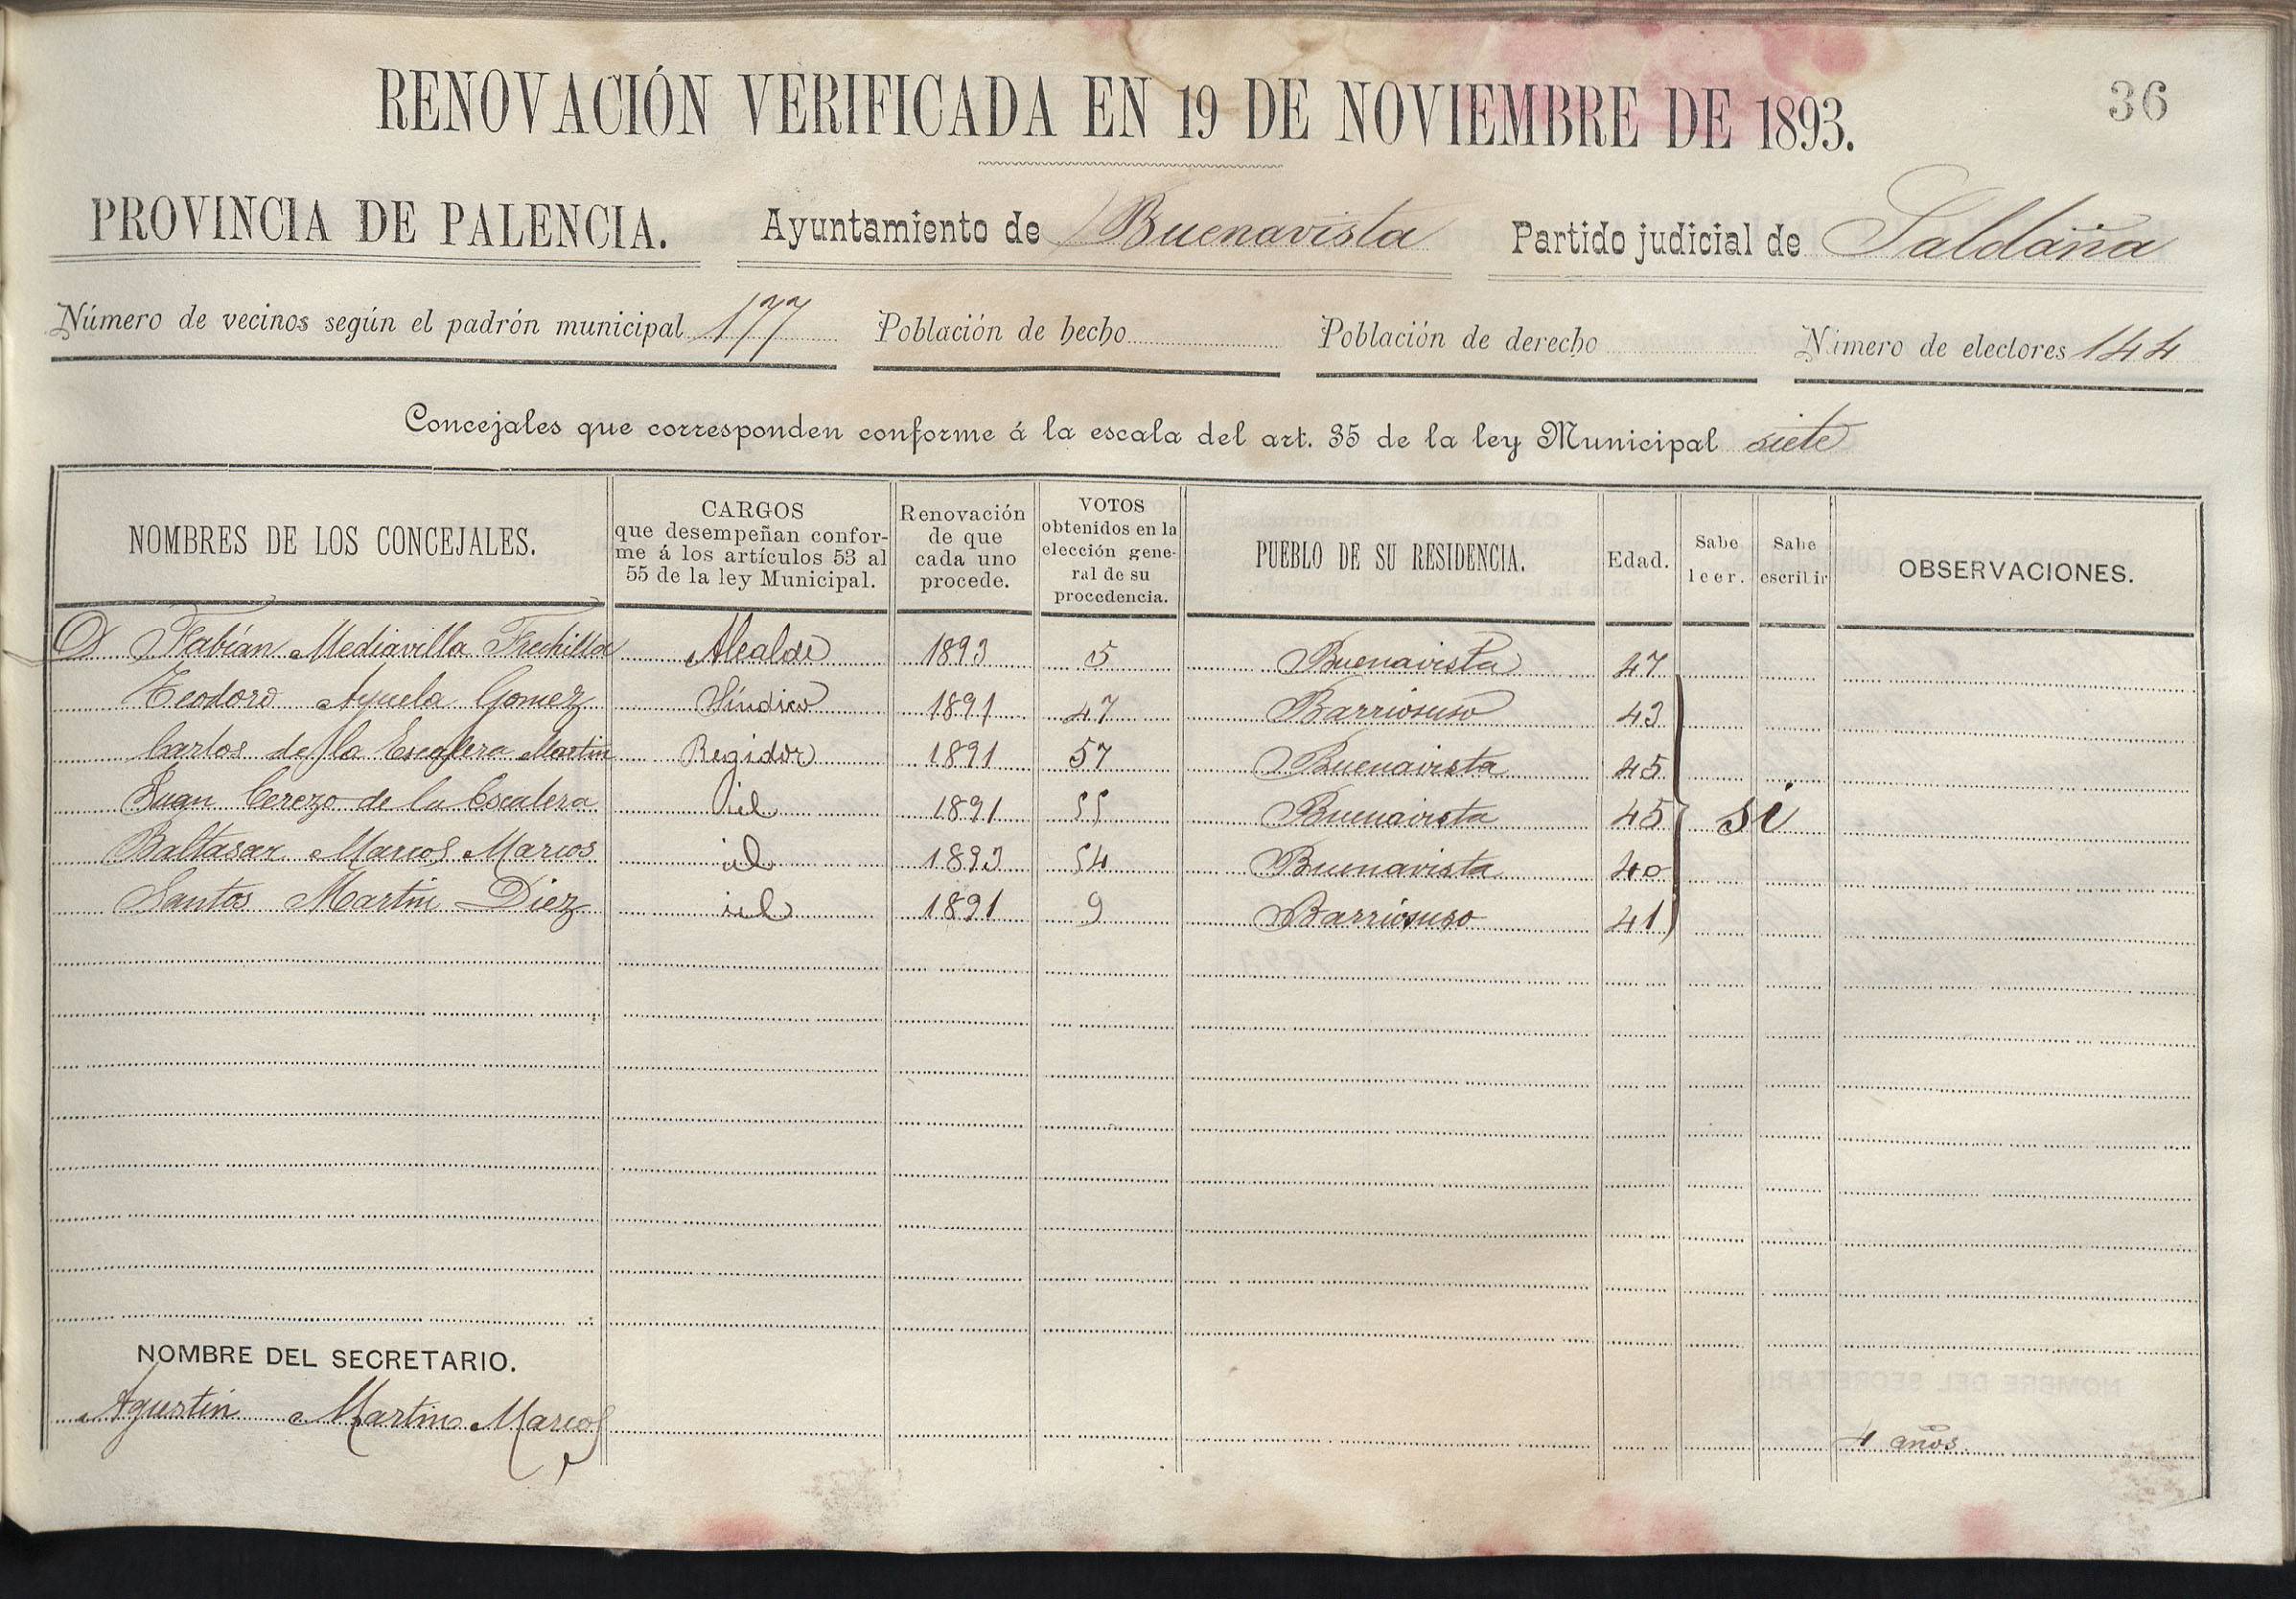 36
RENOVACIÓN VERIFICADA EN 19 DE NOVIEMBRE DE 1893.
PROVINCIA DE PALENCIA. Ayuntamiento de Buenavista Partido judicial de Saldaña
Número de vecinos según el padrón municipal 177 Población de hecho Población de derecho Número de electores 144
Concejales que corresponden conforme á la escala del art. 35 de la ley Municipal siete
NOMBRES DE LOS CONCEJALES. CARGOS que desempeñan confor-me á los artículos 53 al 55 de la ley Municipal. Renovación de que cada uno procede. VOTOS obtenidos en la elección gene-ral de su procedencia. PUEBLO DE SU RESIDENCIA. Edad. Sabe leer. Sabe escribir OBSERVACIONES.
D Fabián Mediavilla Frechilla Alcalde 1893 5 Buenavista 47
Teodoro Ayuela Gomez Síndico 1891 47 Barriosuso 43
Carlos de la Escalera Martin Regidor 1891 57 Buenavista 45
Juan Cerezo de la Escalera id 1891 55 Buenavista 45 si
Baltasar Marcos Marcos id 1893 54 Buenavista 40
Santos Martin Diez id 1891 9 Barriosuso 41
NOMBRE DEL SECRETARIO.
Agustin Martin Marcos 4 años